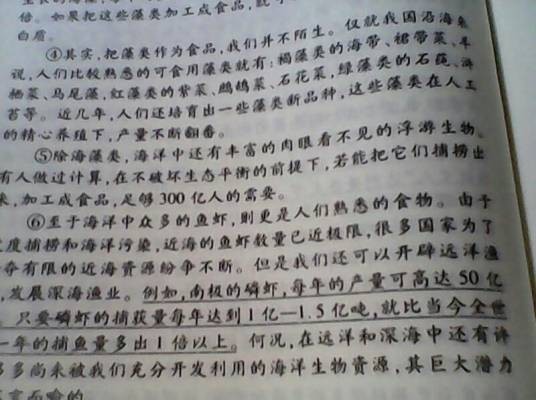 倍。如果把这些藻类加工成食品,就
白质。
④其实,把藻类作为食品,我们并不陌生。仅就我国沿海来
说,人们比较熟悉的可食用藻类就有:褐藻类的海带、裙带菜、羊
栖菜、马尾藻,红藻类的紫菜、鹧鸪菜、石花菜,绿藻类的石莼、浒
苔等。近几年,人们还培育出一些藻类新品种,这些藻类在人工
的精心养殖下,产量不断翻番。
⑤除海藻类,海洋中还有丰富的肉眼看不见的浮游生物。
有人做过计算,在不破坏生态平衡的前提下,若能把它们捕捞出
来,加工成食品,足够300亿人的需要。
⑥至于海洋中众多的鱼虾,则更是人们熟悉的食物。由于
度捕捞和海洋污染,近海的鱼虾数量已近极限,很多国家为了
夺有限的近海资源纷争不断。但是我们还可以开辟远洋渔
,发展深海渔业。例如,南极的磷虾,每年的产量可高达50亿
只要磷虾的捕获量每年达到1亿—1.5亿吨,就比当今全世
一年的捕鱼量多出1倍以上。何况,在远洋和深海中还有许
多尚未被我们充分开发利用的海洋生物资源,其巨大潜力
言而喻的